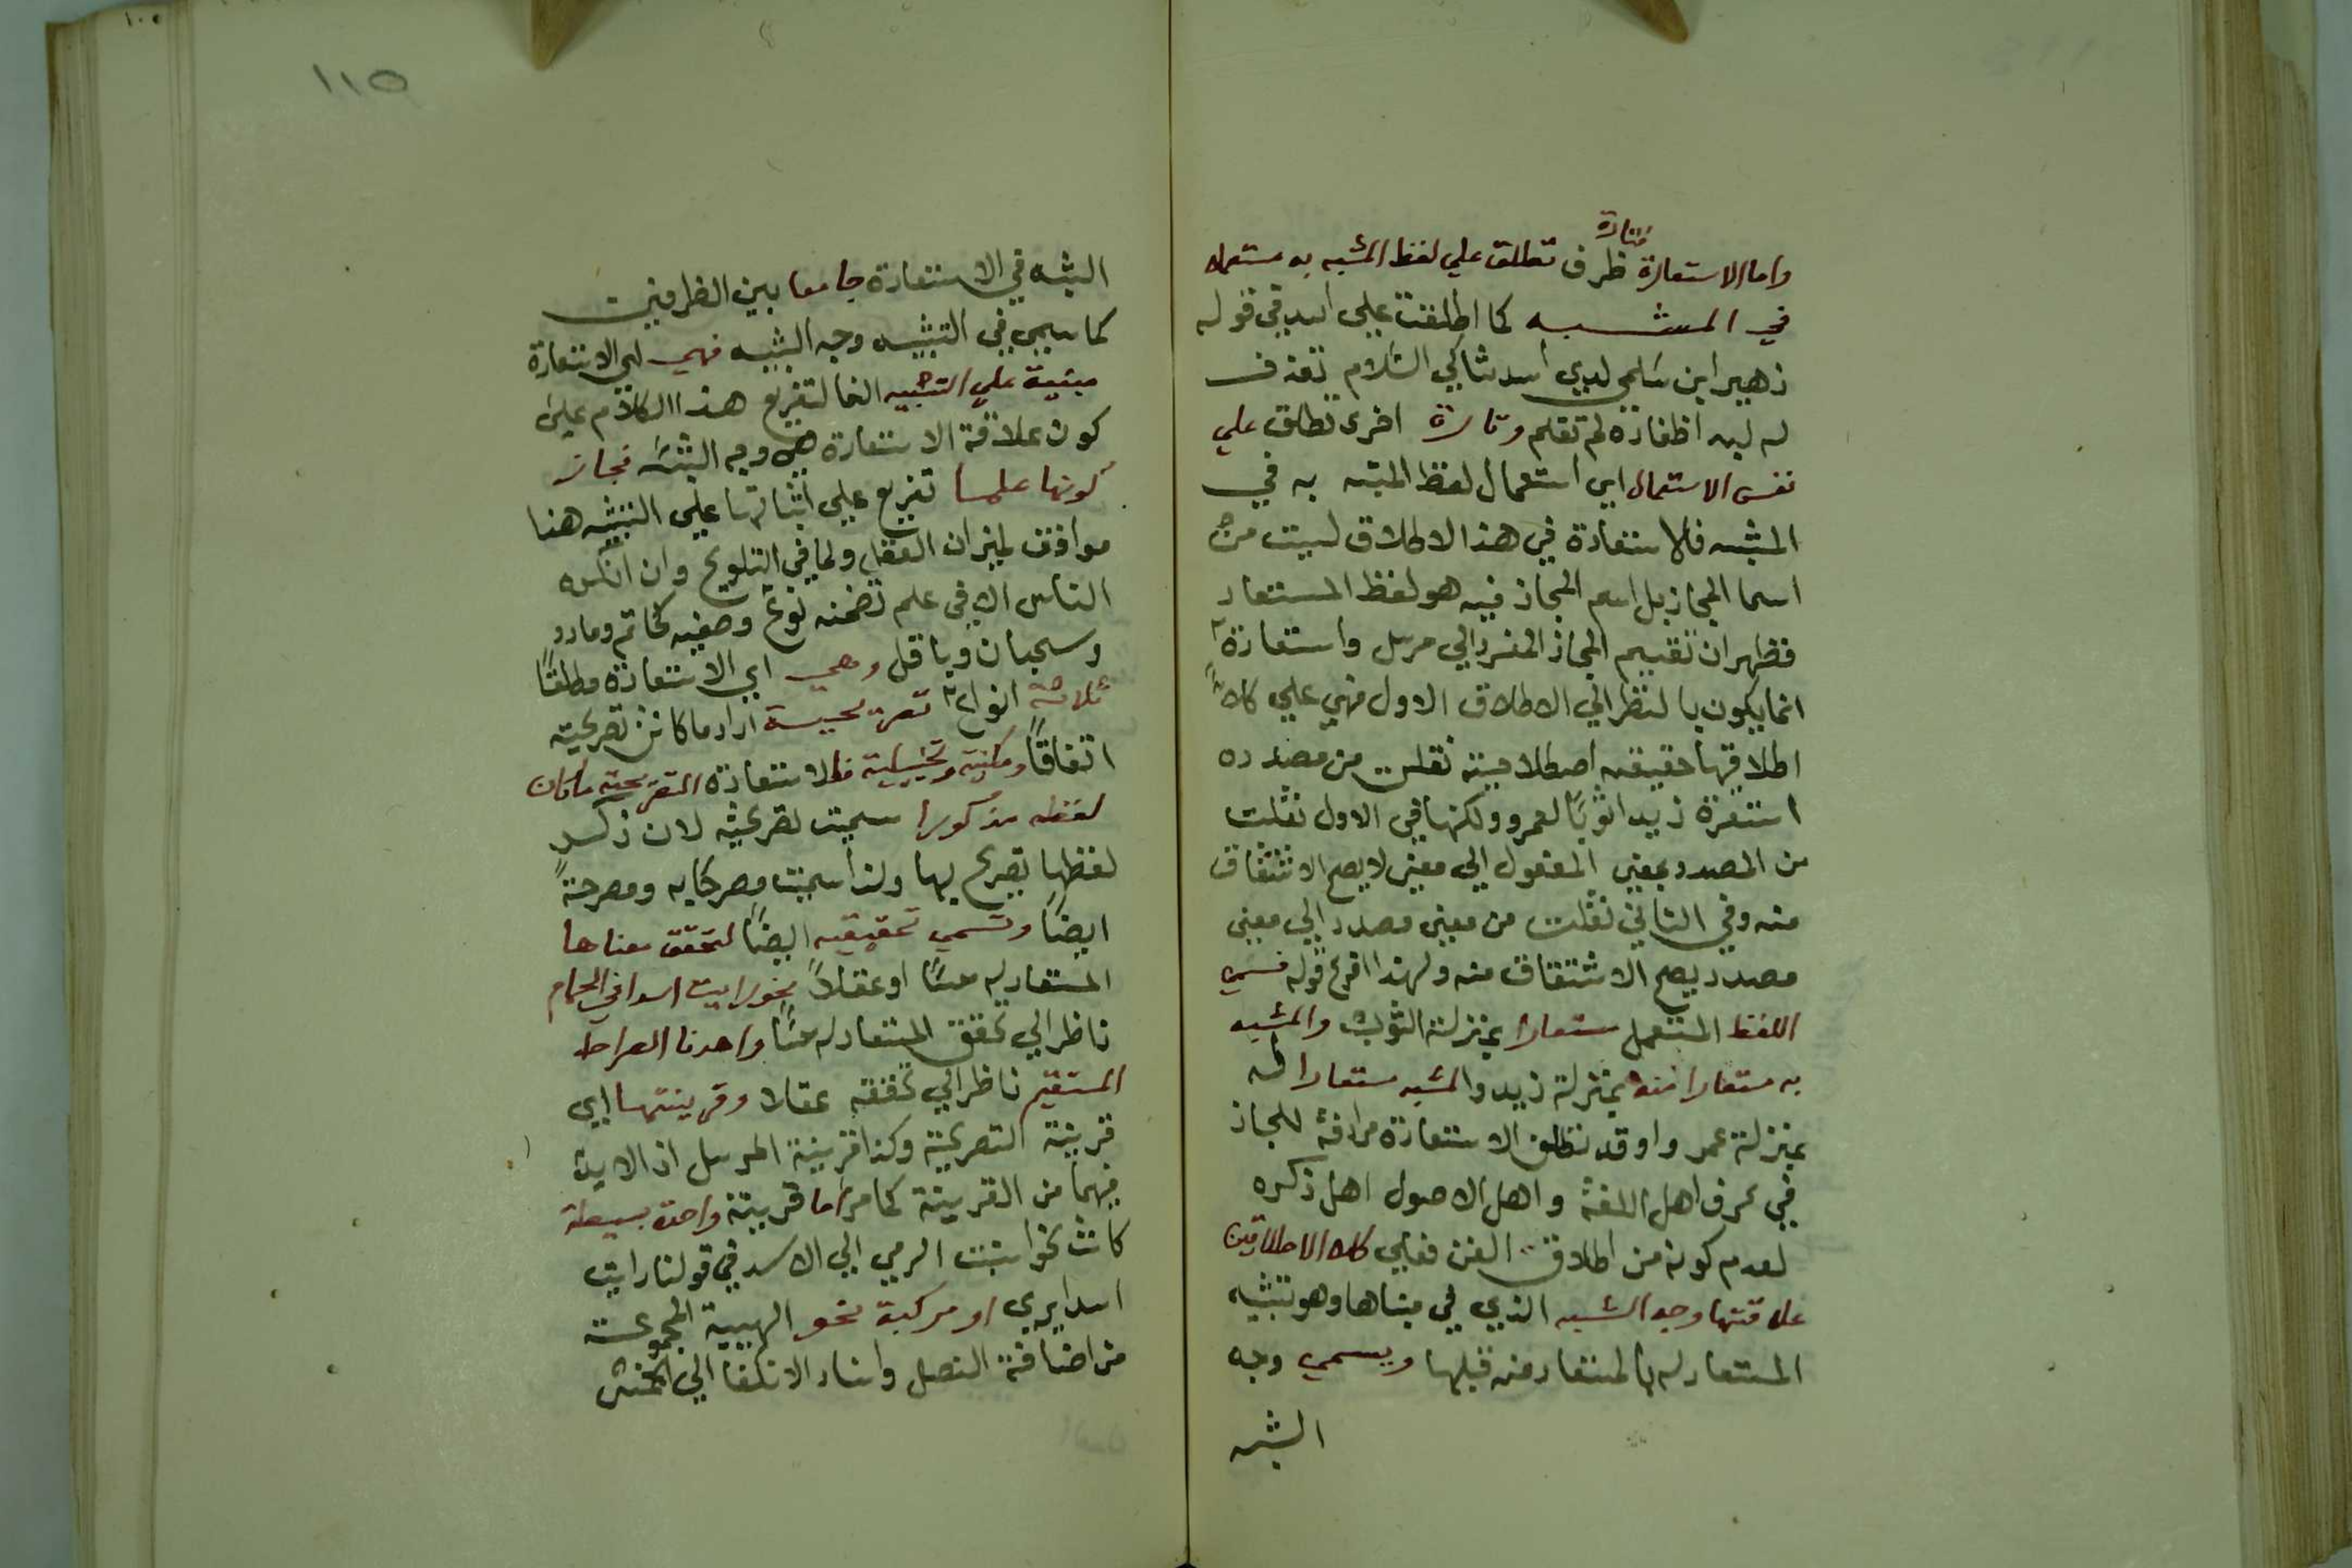 واما الاستعارة ظرف تطلق علي لفظ المشبه به مستعمله
فتارة
في المشبه كما اطلقت علي اسد في قوله
زهير ابن سلمي لدي اسد شاكي السلام تقذف
له لبد اظفاره لم تقلم وتارة اخري تطلق علي
نفس الاستعمال اي استعمال لفظ المشبه به في
المشبه فالاستعارة في هذا الاطلاق ليست من
اسما المجاز بل اسم المجاز فيه هو لفظ المستعار
فظهر ان تقسيم المجاز المفرد الي مرسل واستعارة
انما يكون بالنظر الي الاطلاق الاول فهي علي كلا
اطلاقيها حقيقيه اصطلاحية نقلت من مصدره
استعرة زيدا ثوبًا لعمرو ولكنها في الاول نقلت
من المصدر بمعني المفعول الي معني لا يصح الاشتقاق
منه وفي الثاني نقلت من معني مصدر الي معني
مصدر يصح الاشتقاق منه ولهذا افرع قوله فسمي
اللفظ المستعمل مستعارا بمنزلة الثوب والمشبه
به مستعارا منه بمنزلة زيد والمشبه مستعارا له
بمنزلة عمر واو قد نطلق الاستعارة مرادفة للمجاز
في عرف اهل اللغة واهل الاصول اهل ذكره
لعدم كونه من اطلاق الفن فعلي كلا الاطلاقين
علاقتها وجه الشبه الذي في مبناها وهو تشبيه
المستعار له بالمستعار منه قبلها ويسمي وجه
الشبه
١١٥
الشبه في الاستعارة جامعا بين الظرفين
كما سمي في التشبيه وجه الشبه فهي اي الاستعارة
مبنية علي التشبيه الفا لتفريع هذا الكلام علي
كون علاقة الاستعارة هي وجه الشبه فجاز
كونها علما تفريع علي ابتنائها علي التشبيه هنا
موافق لميزان العقل ولما في التلويح وان انكره
الناس الا في علم تضمنه نوع وصفيه كحاتم ومادر
وسحبان وباقل وهي اي الاستعارة مطلقًا
ثلاثة انواع تصريحيه اراد ما كانت تصريحيه
اتفاقًا ومكنية وتخييلية فالاستعارة التصريحية ما كان
لفظه مذكورا سميت تصريحية لان ذكر
لفظها تصريح بها ولذا سميت مصرحا به ومصرحةً
ايضًا وتسمي تحقيقيه ايضًا لتحقق معناها
المستعار له حسًا او عقلاً نحو رايت اسدا في الحمام
ناظر الي تحقق المستعار له حسًا واهدنا الصراط
المستقيم ناظر الي تحققه عقلا وقرينتها اي
قرينة التصريحية وكذا قرينة المرسل اذ لا بد
فيهما من القرينة كما مر اما قرينة واحدة بسيطة
كانت نحو اسبت الرمي الي الاسد في قولنا رايت
اسدا يرمي او مركبة نحو الهيية المجموعة
من اضافة النصل واسناد الانكفا الي الخمس